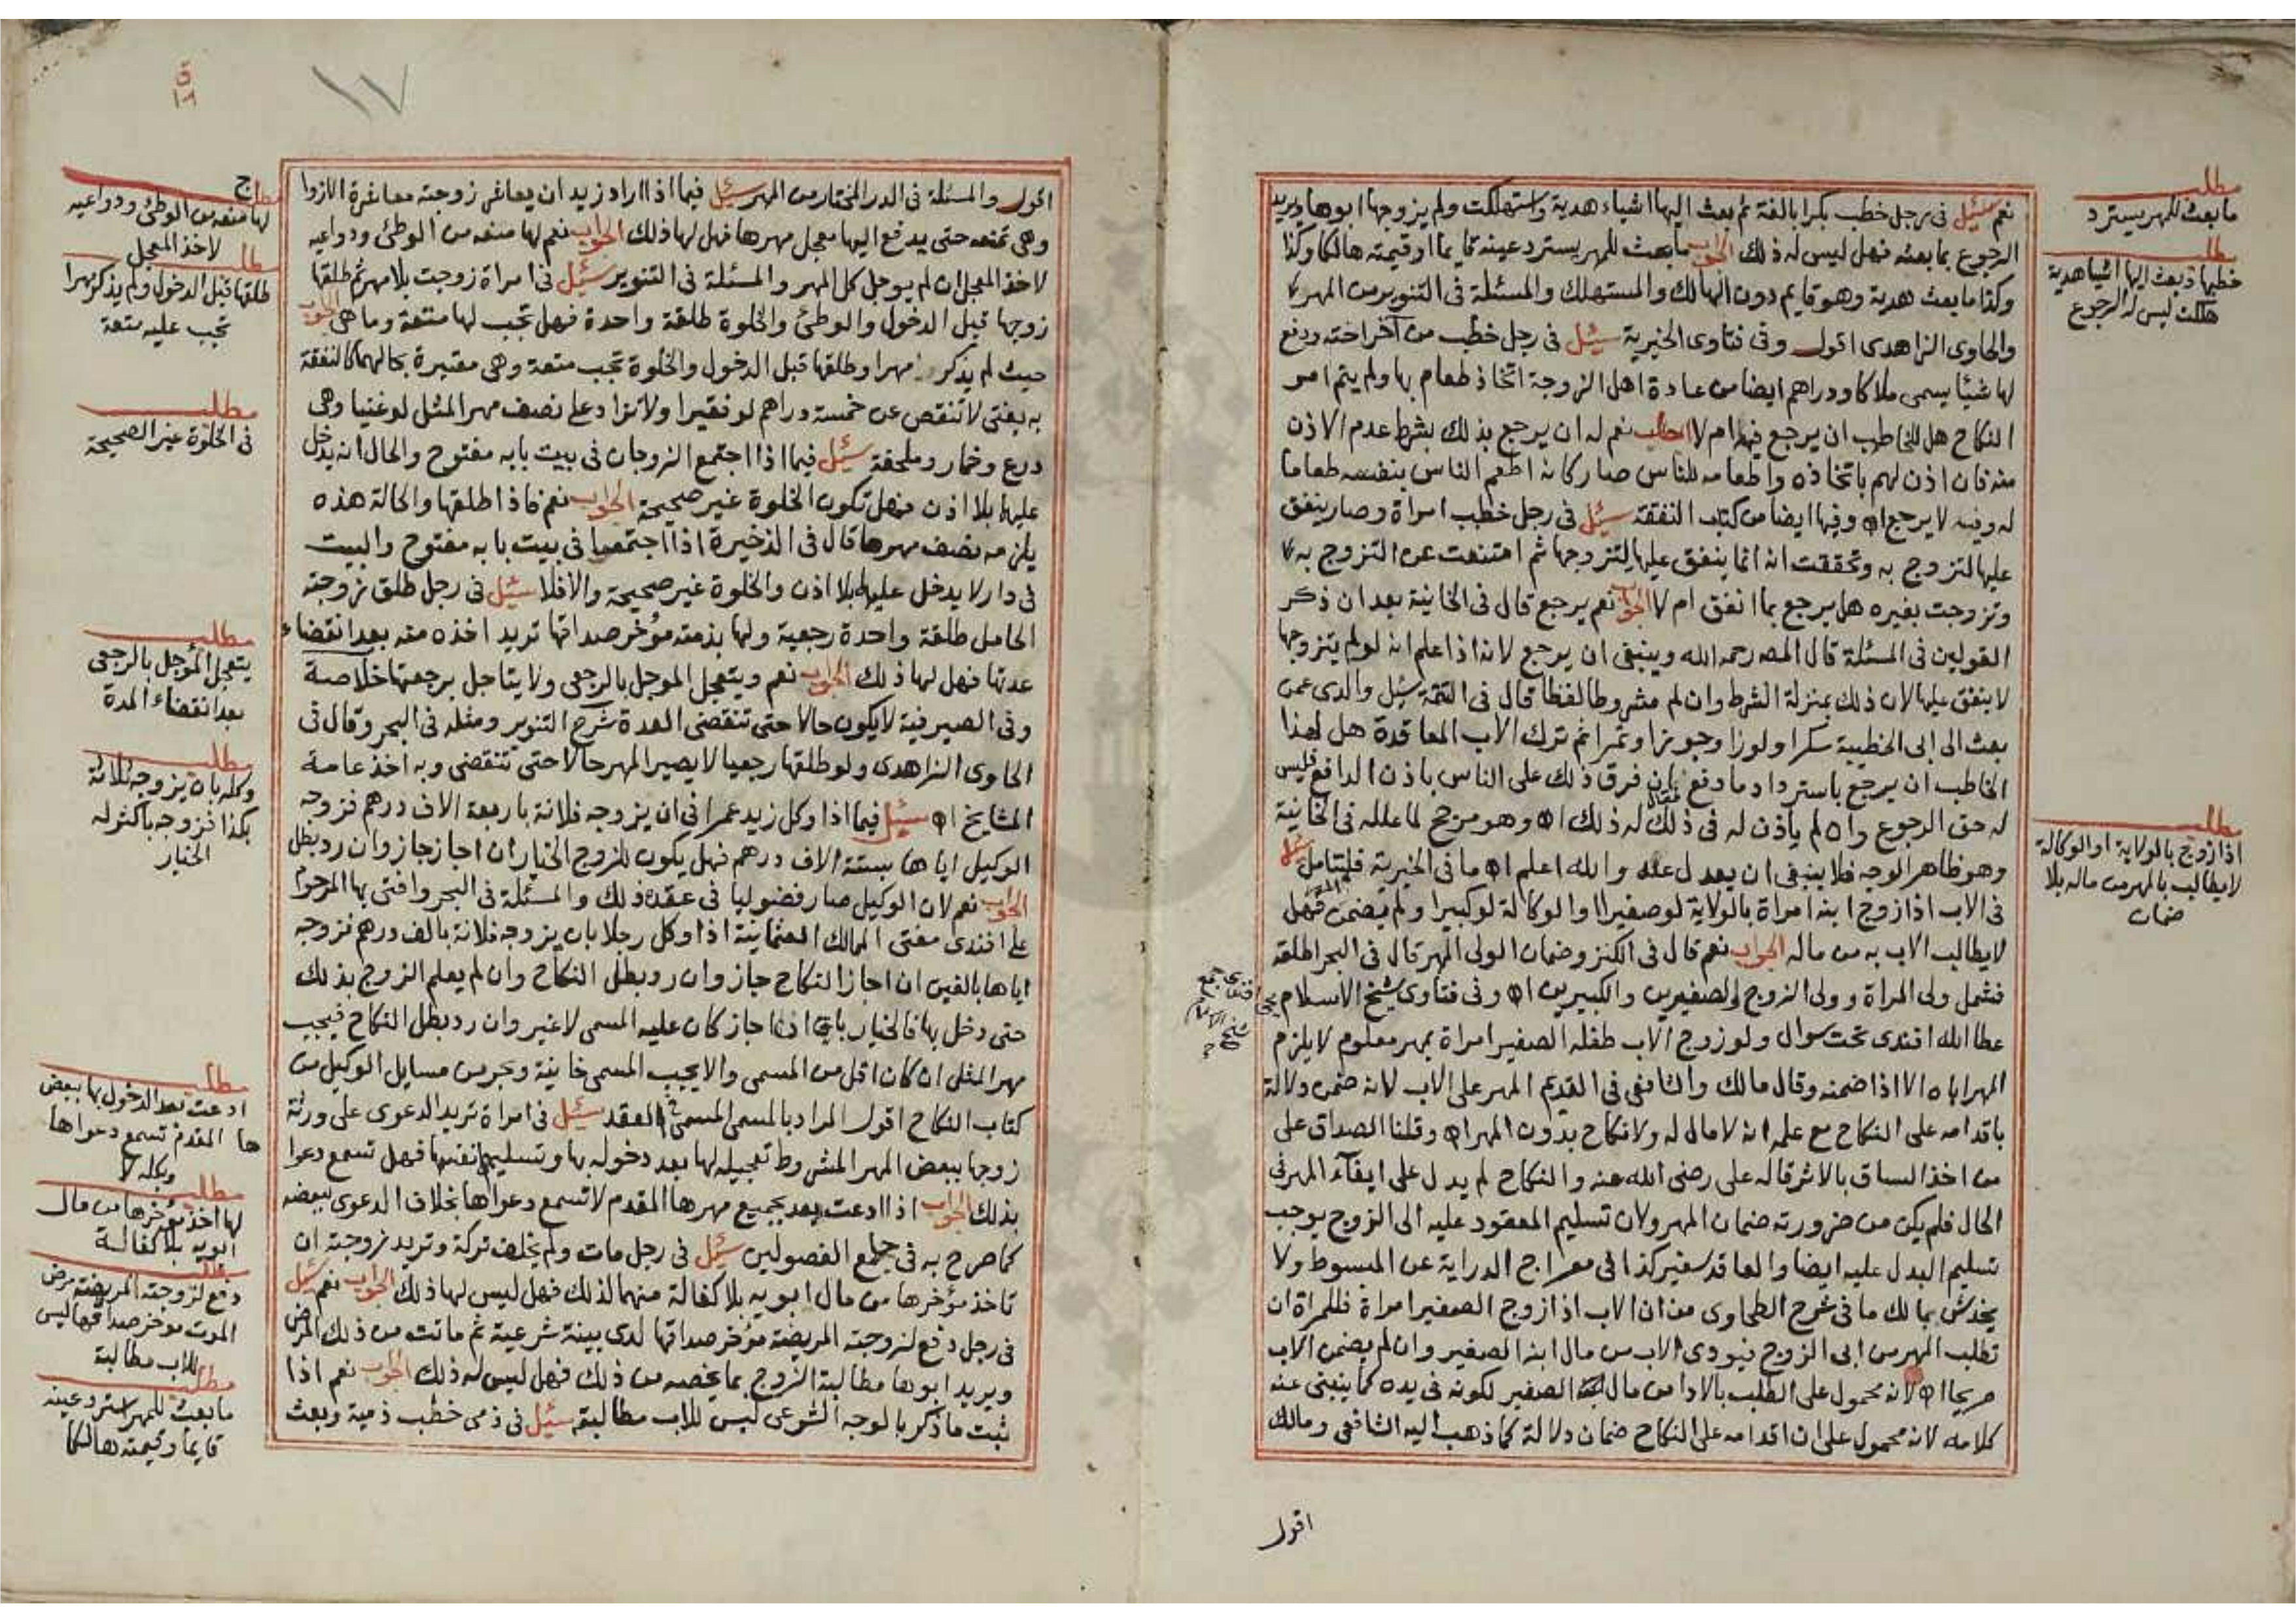 نعم سئل فى رجل خطب بكرا بالغة ثم بعث اليها اشياء هدية واستهلكت ولم يزوجها ابوها ويريد
الرجوع بما بعثه فهل ليس له ذلك الجواب ما بعث للمهر يسترد عينه قايما او قيمته هالكا وكذا
وكذا ما بعث هدية وهو قايم دون الهالك والمستهلك والمسئلة فى التنوير من المهر
والحاوى الزاهدى اقول وفى فتاوى الخيرية سئل فى رجل خطب من آخر اخته ودفع
لها شيئا يسمى ملاكا ودراهم ايضا من عادة اهل الزوجة اتخاذ طعام بها ولم يتم امر
النكاح هل للخاطب ان يرجع فيها ام لا الجواب نعم له ان يرجع بذلك بشرط عدم الاذن
منه فان اذن لهم باتخاذه واطعامه للناس صار كانه اطعم الناس بنفسه طعاما
له وفيه لا يرجع اه وفيها ايضا من كتاب النفقة سئل فى رجل خطب امراة وصار ينفق
عليها لتتزوج به وتحققت انه انما ينفق عليها لتتزوجها ثم امتنعت عن التزوج به
وتزوجت بغيره هل يرجع بما انفق ام لا الجواب نعم يرجع قال فى الخانية بعد ان ذكر
القولين فى المسئلة قال المص رحمه الله وينبغى ان يرجع لانه اذا علم انه لو لم يتزوجها
لا ينفق عليها لان ذلك بمنزلة الشرط وان لم مشروطا لفظا قال فى التتمة سئل والدى عمن
بعث الى ابى الخطيبة سكرا ولوزا وجوزا وتمرا ثم ترك الاب المعاقدة هل لهذا
الخاطب ان يرجع باسترداد ما دفع فقال ان فرق ذلك على الناس باذن الدافع فليس
له حق الرجوع وان لم ياذن له فى ذلك له ذلك اه وهو مرجح لما علله فى الخانية
وهو ظاهر الوجه فلا ينبغى ان يعدل عنه والله اعلم اه ما فى الخيرية فليتامل سئل
فى الاب اذا زوج ابنه امراة بالولاية لو صغيرا او الوكالة لو كبيرا ولم يضمن المهر فهل
لا يطالب الاب به من ماله الجواب نعم قال فى الكنز وضمان الولى المهر قال فى البحر اطلقه
فشمل ولى المراة وولى الزوج الصغيرين والكبيرين اه وفى فتاوى شيخ الاسلام
عطا الله افندى تحت سوال ولو زوج الاب طفله الصغير امراة بمهر معلوم لا يلزم
المهر اباه الا اذا ضمنه وقال مالك والشافعى فى القديم المهر على الاب لانه ضمن دلالة
باقدامه على النكاح مع علمه انه لا مال له ولا نكاح بدون المهر اه وقلنا الصداق على
من اخذ الساق بالاثر قاله على رضى الله عنه والنكاح لم يدل على ايفآء المهر فى
الحال فلم يكن من ضرورته ضمان المهر ولان تسليم المعقود عليه الى الزوج يوجب
تسليم البدل عليه ايضا والعاقد سفير كذا فى معراج الدراية عن المبسوط ولا
يخدش بمالك ما فى شرح الطحاوى من ان الاب اذا زوج الصغير امراة فللمراة ان
تطلب المهر من ابى الزوج فيودى الاب من مال ابنه الصغير وان لم يضمن الاب
صريحا اه لانه محمول على الطلب بالادا من مال الصغير لكونه فى يده كما ينبئ عنه
كلامه لانه محمول على ان اقدامه على النكاح ضمان دلالة كما ذهب اليه الشافعى ومالك
اقول
مطلب
ما بعث للمهر يسترد
مطلب
خطبها وبعث اليها اشيا هدية
هلكت ليس له الرجوع
مطلب
اذا زوج بالولاية او الوكالة
لا يطالب بالمهر من ماله بلا
ضمان
اقول والمسئلة فى الدر المختار من المهر سئل فيما اذا اراد زيد ان يعاشر زوجته معاشرة الازوا
وهى تمنعه حتى يدفع اليها معجل مهرها فهل لها ذلك الجواب نعم لها منعه من الوطئ ودواعيه
لاخذ المعجل ان لم يوجل كل المهر والمسئلة فى التنوير سئل فى امراة زوجت بلا مهر ثم طلقها
زوجها قبل الدخول والوطئ والخلوة طلقة واحدة فهل تجب لها متعة وما هى الجواب
حيث لم يذكر مهرا وطلقها قبل الدخول والخلوة تجب متعة وهى معتبرة بحالهما كالنفقة
به يفتى لا تنقص عن خمسة دراهم لو فقيرا ولا تزاد على نصف مهر المثل لو غنيا وهى
درع وخمار وملحفة سئل فيما اذا اجتمع الزوجان فى بيت بابه مفتوح والحال انه يدخل
عليهما بلا اذن فهل تكون الخلوة غير صحيحة الجواب نعم فاذا طلقها والحالة هذه
يلزمه نصف مهرها قال فى الذخيرة اذا اجتمعا فى بيت بابه مفتوح والبيت
فى دار لا يدخل عليهما بلا اذن والخلوة غير صحيحة والا فلا سئل فى رجل طلق زوجته
الحامل طلقة واحدة رجعية ولها بذمته مؤخر صداقها تريد اخذه منه بعد انقضاء
عدتها فهل لها ذلك الجواب نعم ويتعجل الموجل بالرجعى ولا يتاجل برجعتها خلاصة
وفى الصيرفية لا يكون حالا حتى تنقضى العدة شرح التنوير ومثله فى البحر وقال فى
الحاوى الزاهدى ولو طلقها رجعيا لا يصير المهر حالا حتى تنقضى وبه اخذ عامة
المشايخ اه سئل فيما اذا وكل زيد عمرا فى ان يزوجه فلانة باربعة الاف درهم فزوجه
الوكيل اياها بستة الاف درهم فهل يكون للزوج الخيار ان اجاز جاز وان رد بطل
الجواب نعم لان الوكيل صار فضوليا فى عقده ذلك والمسئلة فى البحر وافتى بها المرحوم
على افندى مفتى الممالك العثمانية اذا وكل رجلا بان يزوجه فلانة بالف درهم فزوجه
اياها بالفين ان اجاز النكاح جاز وان رد بطل النكاح وان لم يعلم الزوج بذلك
حتى دخل بها فالخيار باق اذا اجاز كان عليه المسمى لا غير وان رد بطل النكاح فيجب
مهر المثل ان كان اقل من المسمى والا يجب المسمى خانية وبحر من مسايل الوكيل من
كتاب النكاح اقول المراد بالمسمى المسمى فى العقد سئل فى امراة تريد الدعوى على ورثة
زوجها ببعض المهر المشروط تعجيله لها بعد دخوله بها وتسليم نفسها فهل تسمع دعوا
بذلك الجواب اذا ادعت بعد بجميع مهرها المقدم لا تسمع دعواها بخلاف الدعوى ببعضه
كما صرح به فى جامع الفصولين سئل فى رجل مات ولم يخلف تركة وتريد زوجته ان
تاخذ مؤخرها من مال ابويه بلا كفالة منهما لذلك فهل ليس لها ذلك الجواب نعم سئل
فى رجل دفع لزوجته المريضة مؤخر صداقها لدى بينة شرعية ثم ماتت من ذلك المرض
ويريد ابوها مطالبة الزوج بما يخصه من ذلك فهل ليس له ذلك الجواب نعم اذا
ثبت ما ذكر بالوجه الشرعى ليس للاب مطالبته سئل فى ذمى خطب ذمية وبعث
١٧
مطلب
لها منعه من الوطئ ودواعيه
لاخذ المعجل
مطلب
طلقها قبل الدخول ولم يذكر مهرا
تجب عليه متعة
مطلب
فى الخلوة غير الصحيحة
مطلب
يتعجل المؤجل بالرجعى
بعد انقضاء المدة
مطلب
وكله بان يزوجه فلانة
بكذا فزوجه باكثر له
الخيار
مطلب
ادعت بعد الدخول بها ببعض
ها المقدم تسمع دعواها
وبكله لا
مطلب
لها اخذ مؤخرها من مال
ابويه بلا كفالة
مطلب
دفع لزوجته المريضة مرض
الموت موخر صداقها ليس
للاب مطالبة
مطلب
ما بعث للمهر استرد عينه
قايما وقيمته هالكا